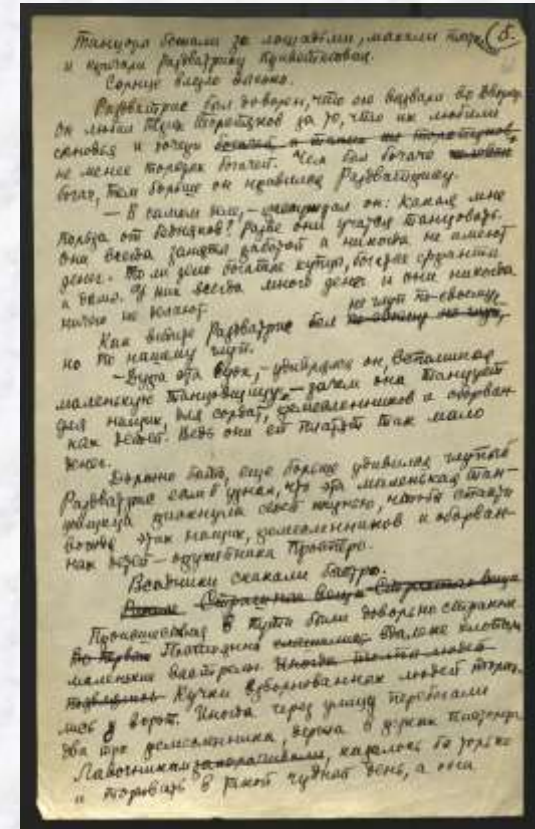 Танцоры бежали за лошадьми, махали (5.
и кричали Раздватрису приветствия.
Солнце
Раздватрис был доволен, что его вызвали во Дворец.
Он любил Трех Толстяков за то, что их любили
сыновья и дочери
не менее толстых богачей. Чем был богаче
богач, тем больше он нравился Раздватрису.
— В самом деле, — рассуждал он: какая мне
польза от бедняков? Разве они учатся танцовать.
Они всегда заняты работой и никогда не имеют
денег. То ли дело богатые купцы, богатые франты
и дамы. У них всегда много денег и они никогда
ничего не делают.
не глуп по-своему,
Как видите Раздватрис был по-своему не глуп,
но по нашему глуп.
— Дура эта Суок, — удивлялся он, вспоминая
маленькую танцовщицу, — зачем она танцует
для нищих, для солдат, ремесленников и оборван-
ных детей. Ведь они ей платят так мало
денег.
Должно быть, еще больше удивился глупый
Раздватрис если б узнал, что эта маленькая тан-
цовщица рискнула своей жизнью, чтобы спасти
вождя этих нищих, ремесленников и оборван-
ных детей — оружейника Просперо.
Всадники скакали быстро.
В пути были довольно странные
Происшествия
Постоянно вдалеке хлопали
маленькие выстрелы.
Кучки взволнованных людей толпи-
лись у ворот. Иногда через улицу перебегали
два три ремесленника, держа в руках пистолеты
Лавочникам казалось бы только
и торговать в такой чудный день, а они